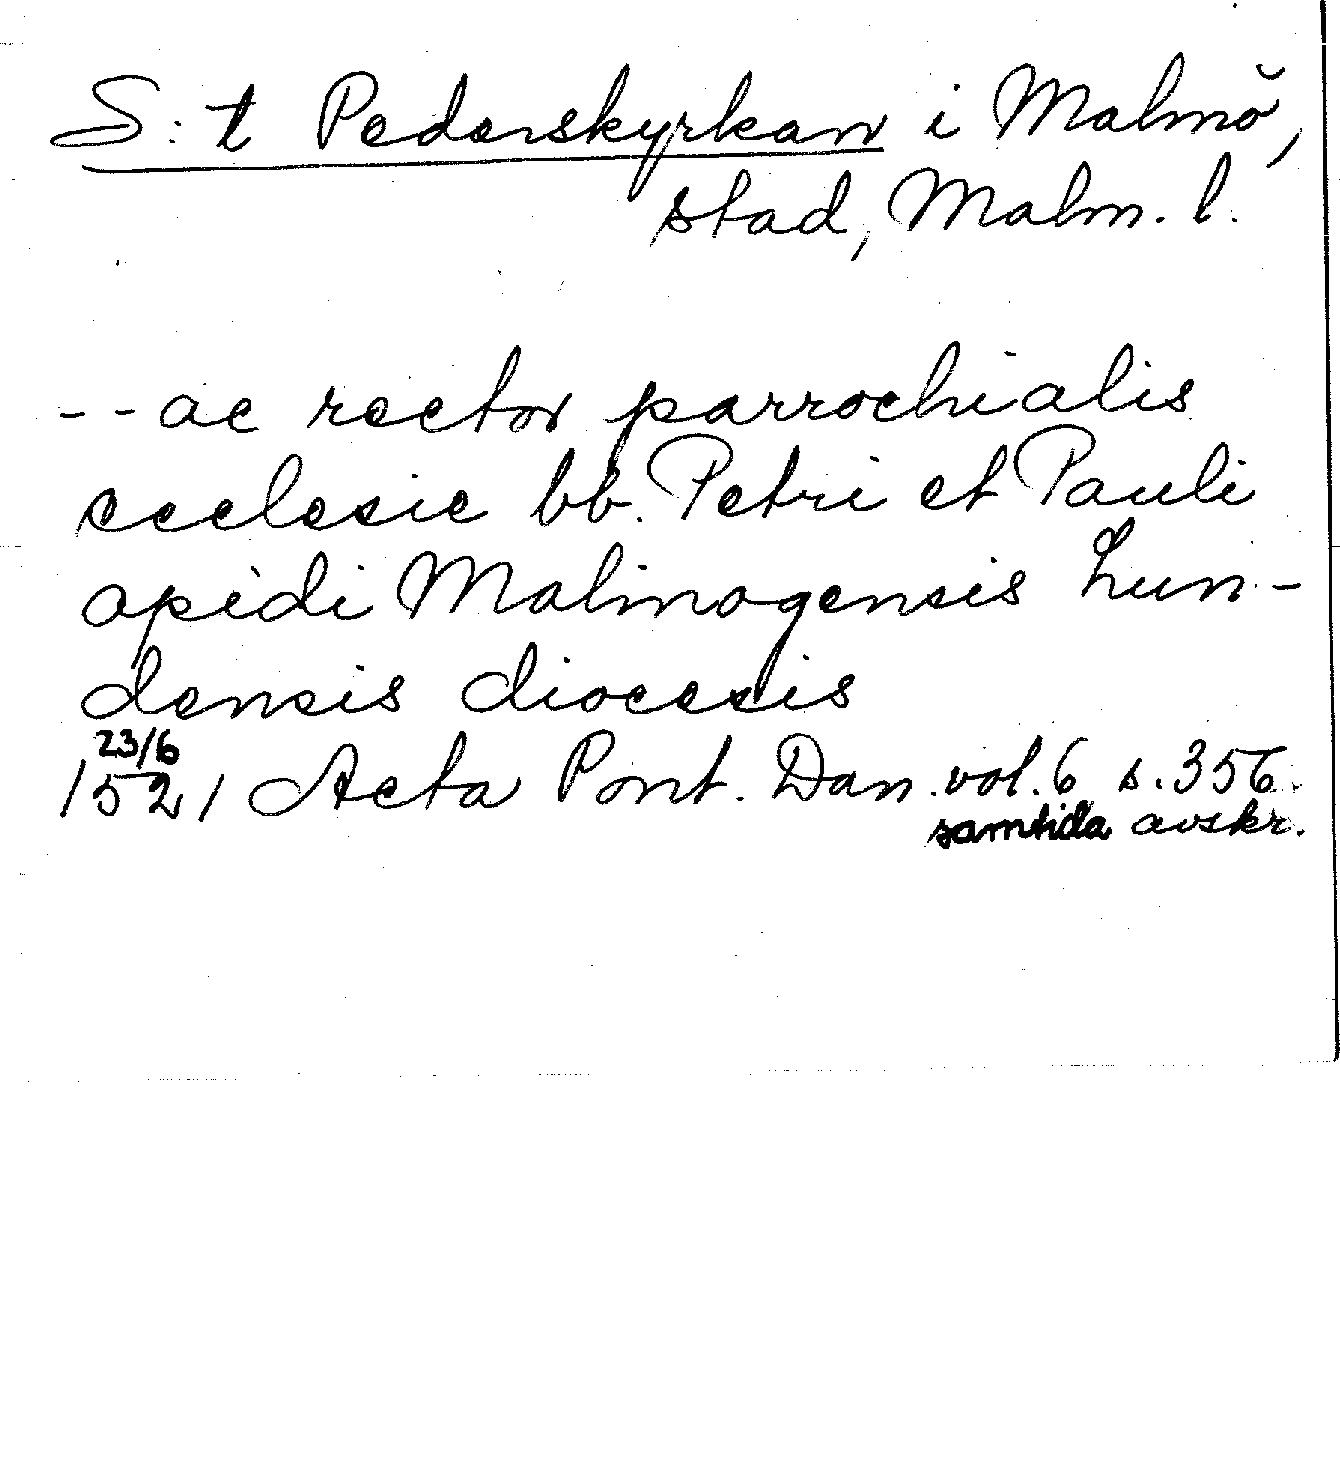 S:t Pederskyrkan i Malmö,
stad, Malm. l.
-- ac rector parrochialis
ecclesie bb. Petri et Pauli
opidi Malmogensis Lun-
densis diocesis
23/6
1521 Acta Pont. Dan. vol. 6 s. 356.
samtida avskr.